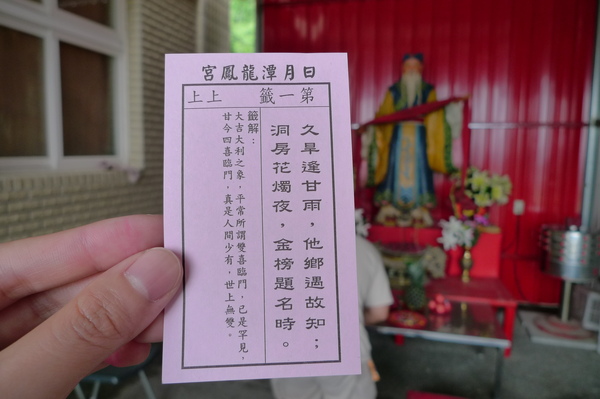 日月潭龍鳳宮
第一籤 上上
久旱逢甘雨，他鄉遇故知；
洞房花燭夜，金榜題名時。
籤解：
大吉大利之象，平常所謂雙喜臨門，已是罕見，
甘今四喜臨門，真是人間少有，世上無雙。